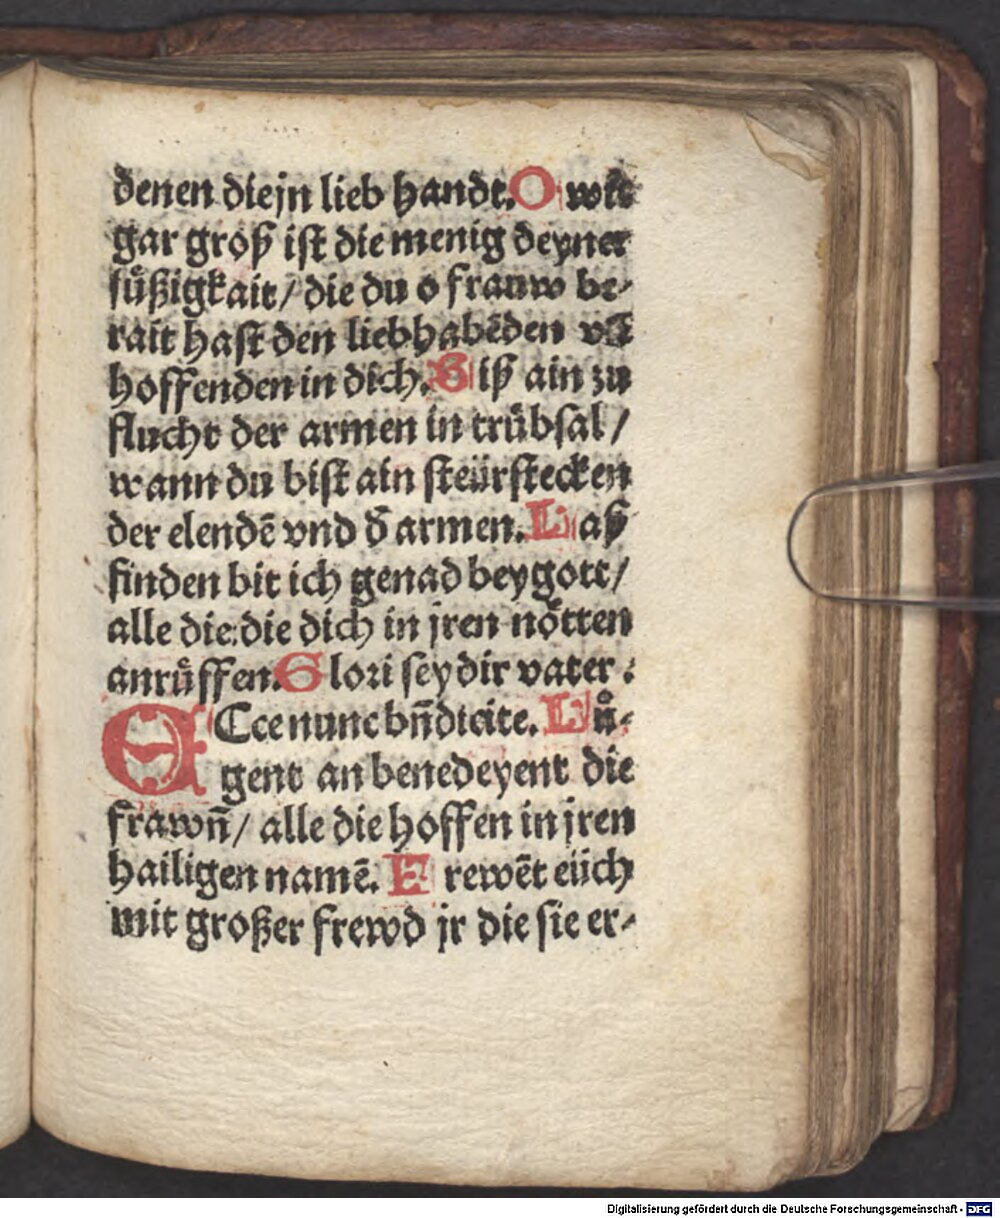 denen die jn lieb handt. O wie
gar groß ist die menig deyner
süßigkait / die du o frauw be-
rait hast den liebhabēden vñ
hoffenden in dich. Biß ain zu
flucht der armen in trübsal /
wann du bist ain steürstecken
der elendē vnd đ armen. Laß
finden bit ich genad bey gott /
alle die: die dich in jren nötten
anrůffen. Glori sey dir vater :
ECce nunc bn̄dicite. Lů-
gent an benedeyent die
frawn̄ / alle die hoffen in jren
hailigen namē. Frewēt eüch
mit großer frewd jr die sie er-
Digitalisierung gefördert durch die Deutsche Forschungsgemeinschaft - DFG